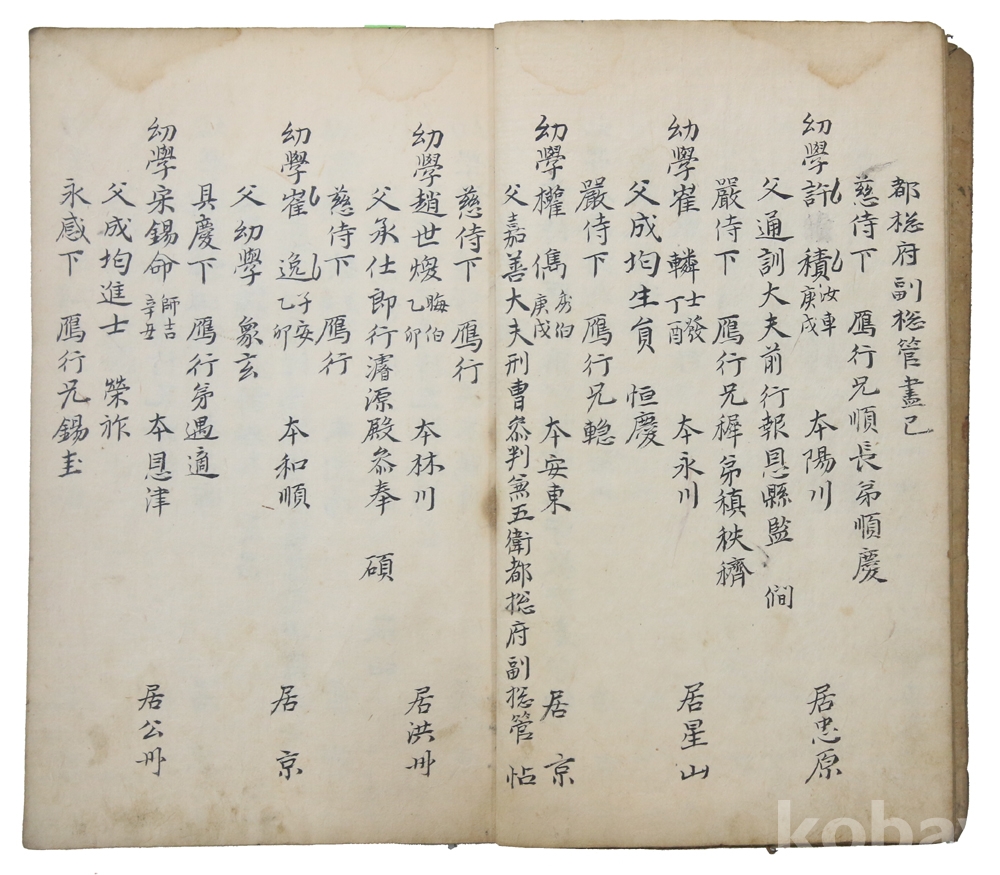 都捴府副捴管盡己
慈侍下 鴈行兄順長弟順慶
幼學許積汝車庚戌 本陽川 居忠原
父通訓大夫前行報恩縣監 僩
嚴侍下 鴈行兄穉弟稹秩穧
幼學崔轔士發丁酉 本永川 居星山
父成均生員 恒慶
嚴侍下 鴈行兄
幼學權儁伯庚戌 本安東 居京
父嘉善大夫刑曹叅判兼五衛都捴府副捴管 怗
慈侍下 鴈行
幼學趙世煥晦伯乙卯 本林川 居洪州
父承仕郎行濬源殿叅奉 碩
慈侍下 鴈行
幼學崔逸子安乙卯 本和順 居京
父幼學 象玄
具慶下 鴈行弟遇適
幼學宋錫命師吉辛丑 本恩津 居公州
父成均進士 榮祚
永感下 鴈行兄錫圭
kobay